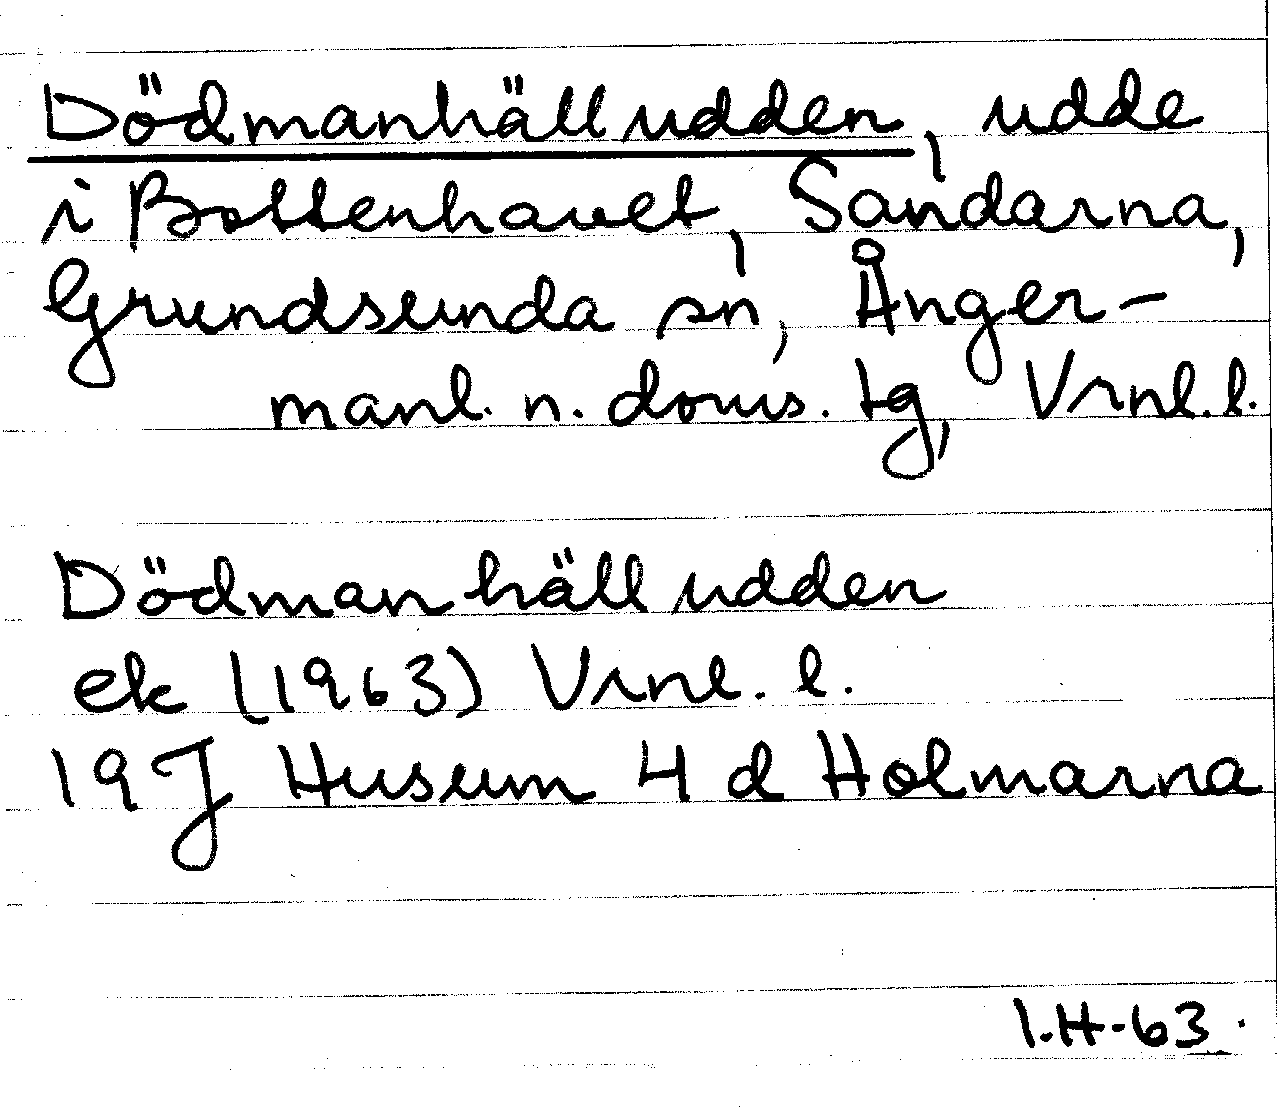 Dödmanhälludden, udde
i Bottenhavet, Sandarna,
Grundsunda sn, Ånger-
manl. n. doms. tg, Vrnl. l.
Dödmanhälludden
ek (1963) Vrnl. l.
19J Husum 4 d Holmarna
I.H-63.